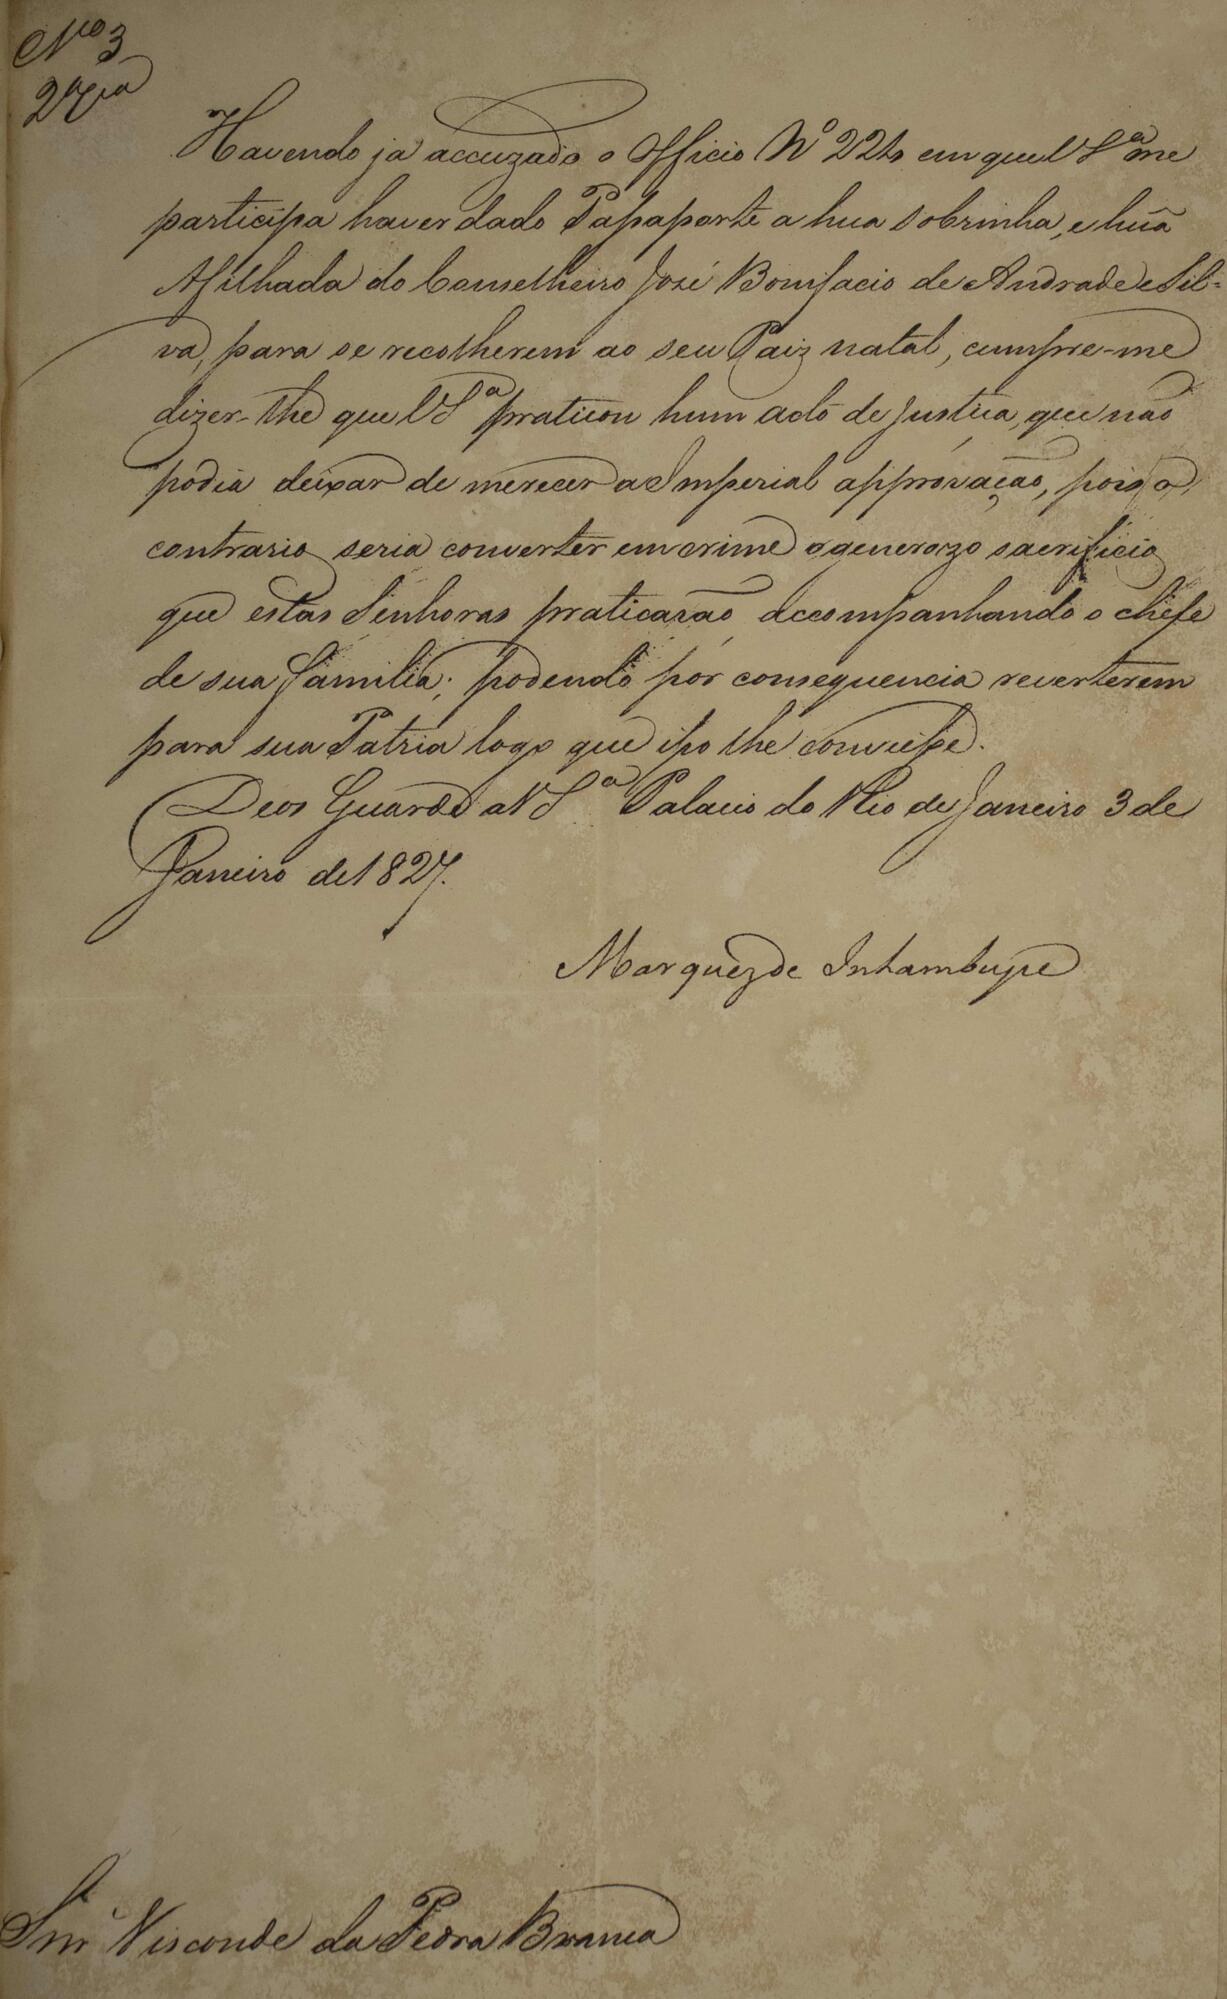 Nº 3
2ª Via
Havendo já accuzado o Officio Nº 224 em que V Sª me
participa haver dado Passaporte a hua sobrinha, e hũa
Afilhada do Conselheiro José Bonifacio de Andrade e Sil-
va, para se recolherem ao seu Paiz natal, cumpre-me
dizer-lhe que V Sª praticou hum acto de justiça, que não
podia deixar de merecer a Imperial approvação, pois o
contrario seria converter em crime o generozo sacrificio
que estas Senhoras praticarão accompanhando o chefe
de sua familia; podendo por consequencia reverterem
para sua Patria logo que isso lhe convиesse.
Deos Guarde a V Sª Palacio do Rio de Janeiro 3 de
Janeiro de 1827.
Marquez de Inhambupe
Snr. Visconde da Pedra Branca